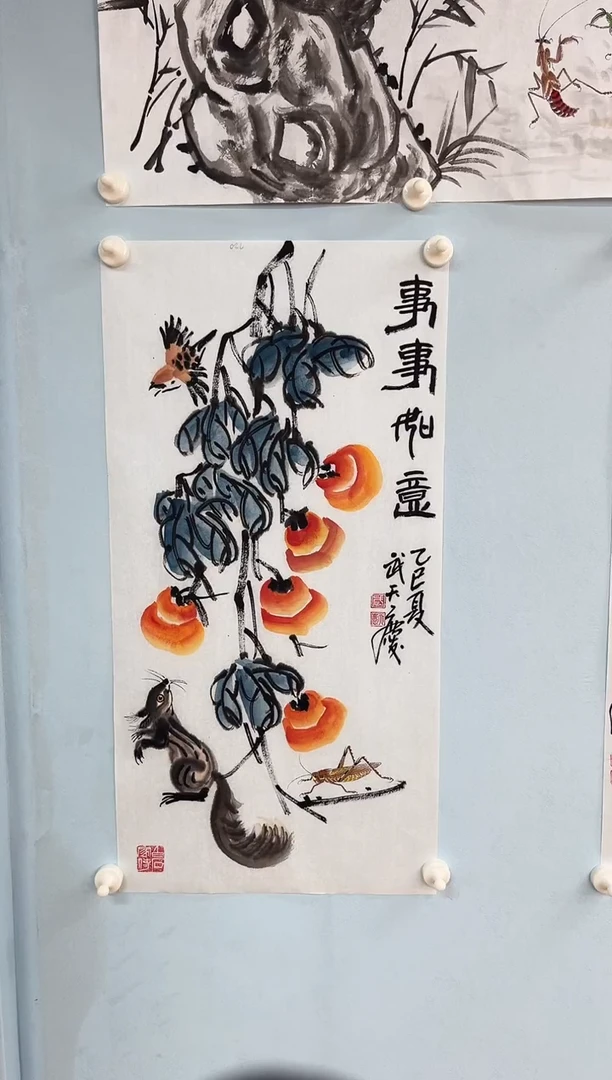 事事如意
乙巳夏
武天慶